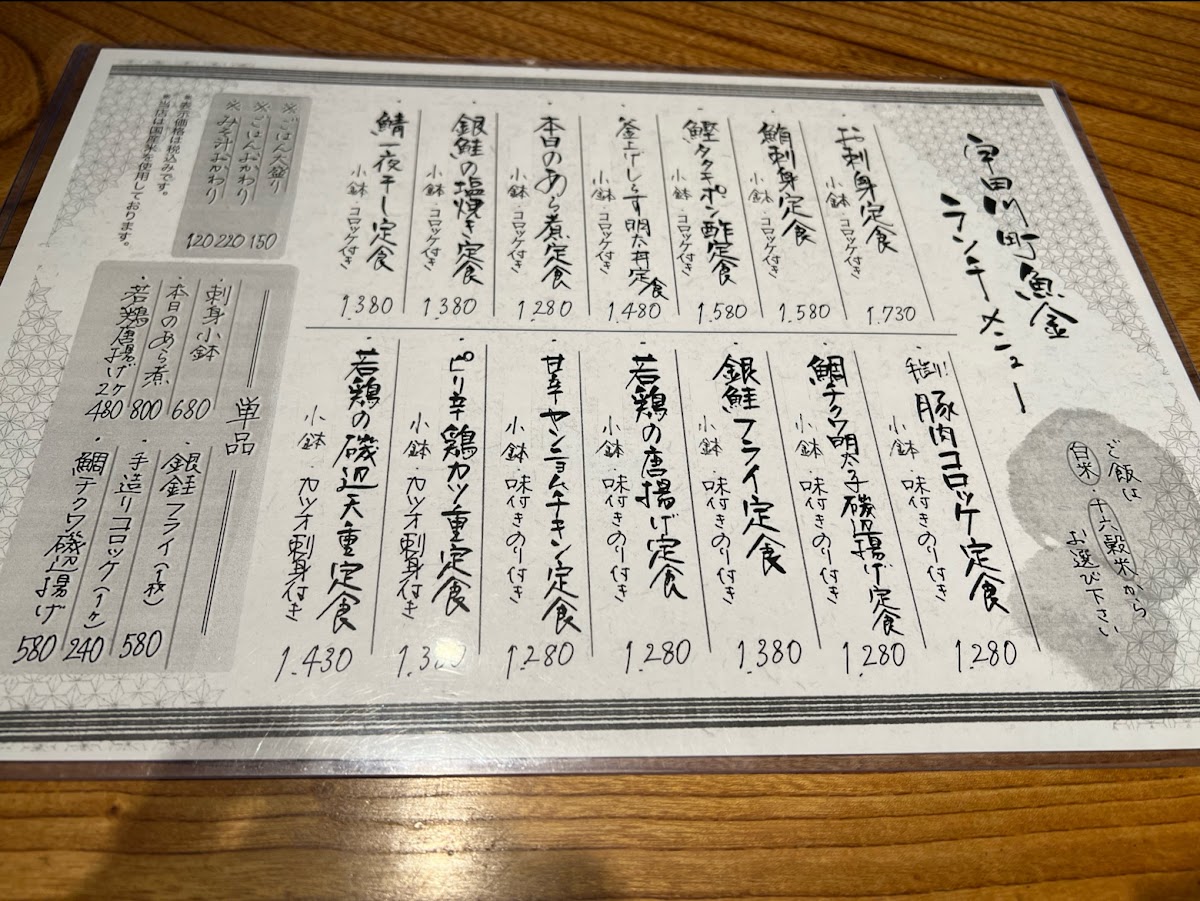 宇田川町魚金
ランチメニュー
ご飯は
白米・十六穀米から
お選び下さい
・お刺身定食
小鉢・コロッケ付き
1.730
・鮪刺身定食
小鉢・コロッケ付き
1.580
・鰹タタキポン酢定食
小鉢・コロッケ付き
1.580
・釜上げしらす明太丼定食
小鉢・コロッケ付き
1.480
・本日のあら煮定食
小鉢・コロッケ付き
1.280
・銀鮭の塩焼き定食
小鉢・コロッケ付き
1.380
・鯖一夜干し定食
小鉢・コロッケ付き
1.380
・手造り!豚肉コロッケ定食
小鉢・味付きのり付き
1.280
・鯛チクワ明太子磯辺揚げ定食
小鉢・味付きのり付き
1.280
・銀鮭フライ定食
小鉢・味付きのり付き
1.380
・若鶏の唐揚げ定食
小鉢・味付きのり付き
1.280
・甘辛ヤンニョムチキン定食
小鉢・味付きのり付き
1.280
・ピリ辛鶏カツ重定食
小鉢・カツオ刺身付き
・若鶏の磯辺天重定食
小鉢・カツオ刺身付き
1.430
※ごはん大盛り 150
※ごはんおかわり 220
※みそ汁おかわり 120
■表示価格は税込みです。
■当店は国産米を使用しております。
単品
・刺身小鉢 680
・本日のあら煮 800
・若鶏唐揚げ2ケ 480
・銀鮭フライ(1枚) 580
・手造りコロッケ(1ケ) 240
・鯛チクワ磯辺揚げ 580